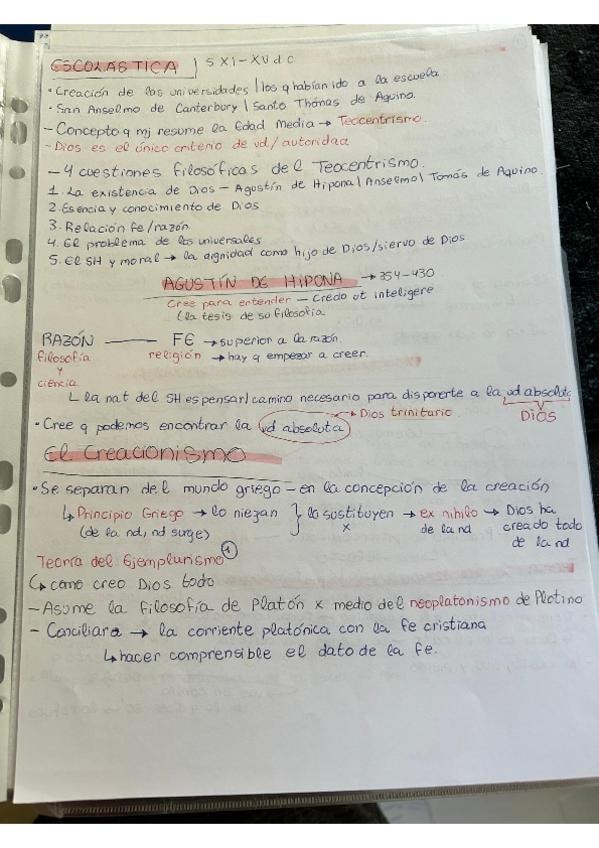 ESCOLASTICA | S XI - XV d C
• Creación de las universidades / los q habían ido a la escuela
• San Anselmo de Canterbury | Santo Thomas de Aquino.
- Concepto q mj resume la Edad Media → Teocentrismo.
- Dios es el único criterio de vd / autoridad
- 4 cuestiones filosóficas del Teocentrismo.
1. La existencia de Dios - Agustín de Hipona | Anselmo | Tomás de Aquino.
2. Esencia y conocimiento de Dios
3. Relación fe/razón
4. El problema de los universales
5. El SH y moral → la dignidad como hijo de Dios/siervo de Dios
AGUSTÍN DE HIPONA → 354-430
Cree para entender - Credo ut inteligere
(la tesis de su filosofía
RAZÓN —— FE → superior a la razón.
filosofía religión → hay q empezar a creer.
y
ciencia
↳ la nat del SH es pensar/camino necesario para disponerte a la vd absoluta
Dios
• Cree q podemos encontrar la vd absoluta → Dios trinitario
El Creacionismo
• Se separan del mundo griego - en la concepción de la creación
↳ Principio Griego → lo niegan } lo sustituyen → ex nihilo → Dios ha
(de la nd, nd surge) x de la nd creado todo
de la nd
Teoría del Ejemplarismo 1
↳ como creo Dios todo
- Asume la filosofía de Platón x medio del neoplatonismo de Plotino
- Conciliara → la corriente platónica con la fe cristiana
↳ hacer comprensible el dato de la fe.